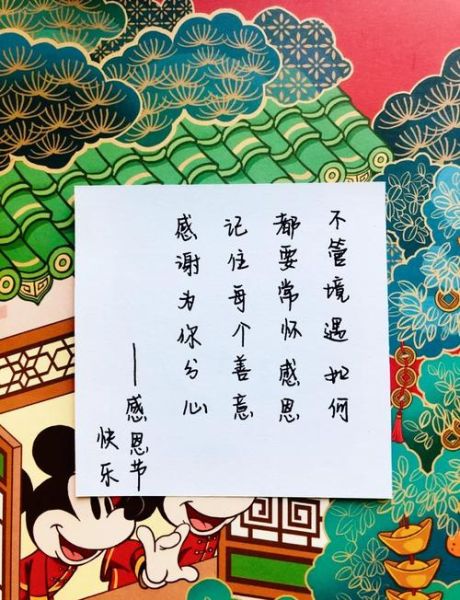 不管境遇如何
都要常怀感恩
记住每个善意
感谢为你分心
——感恩节
快乐